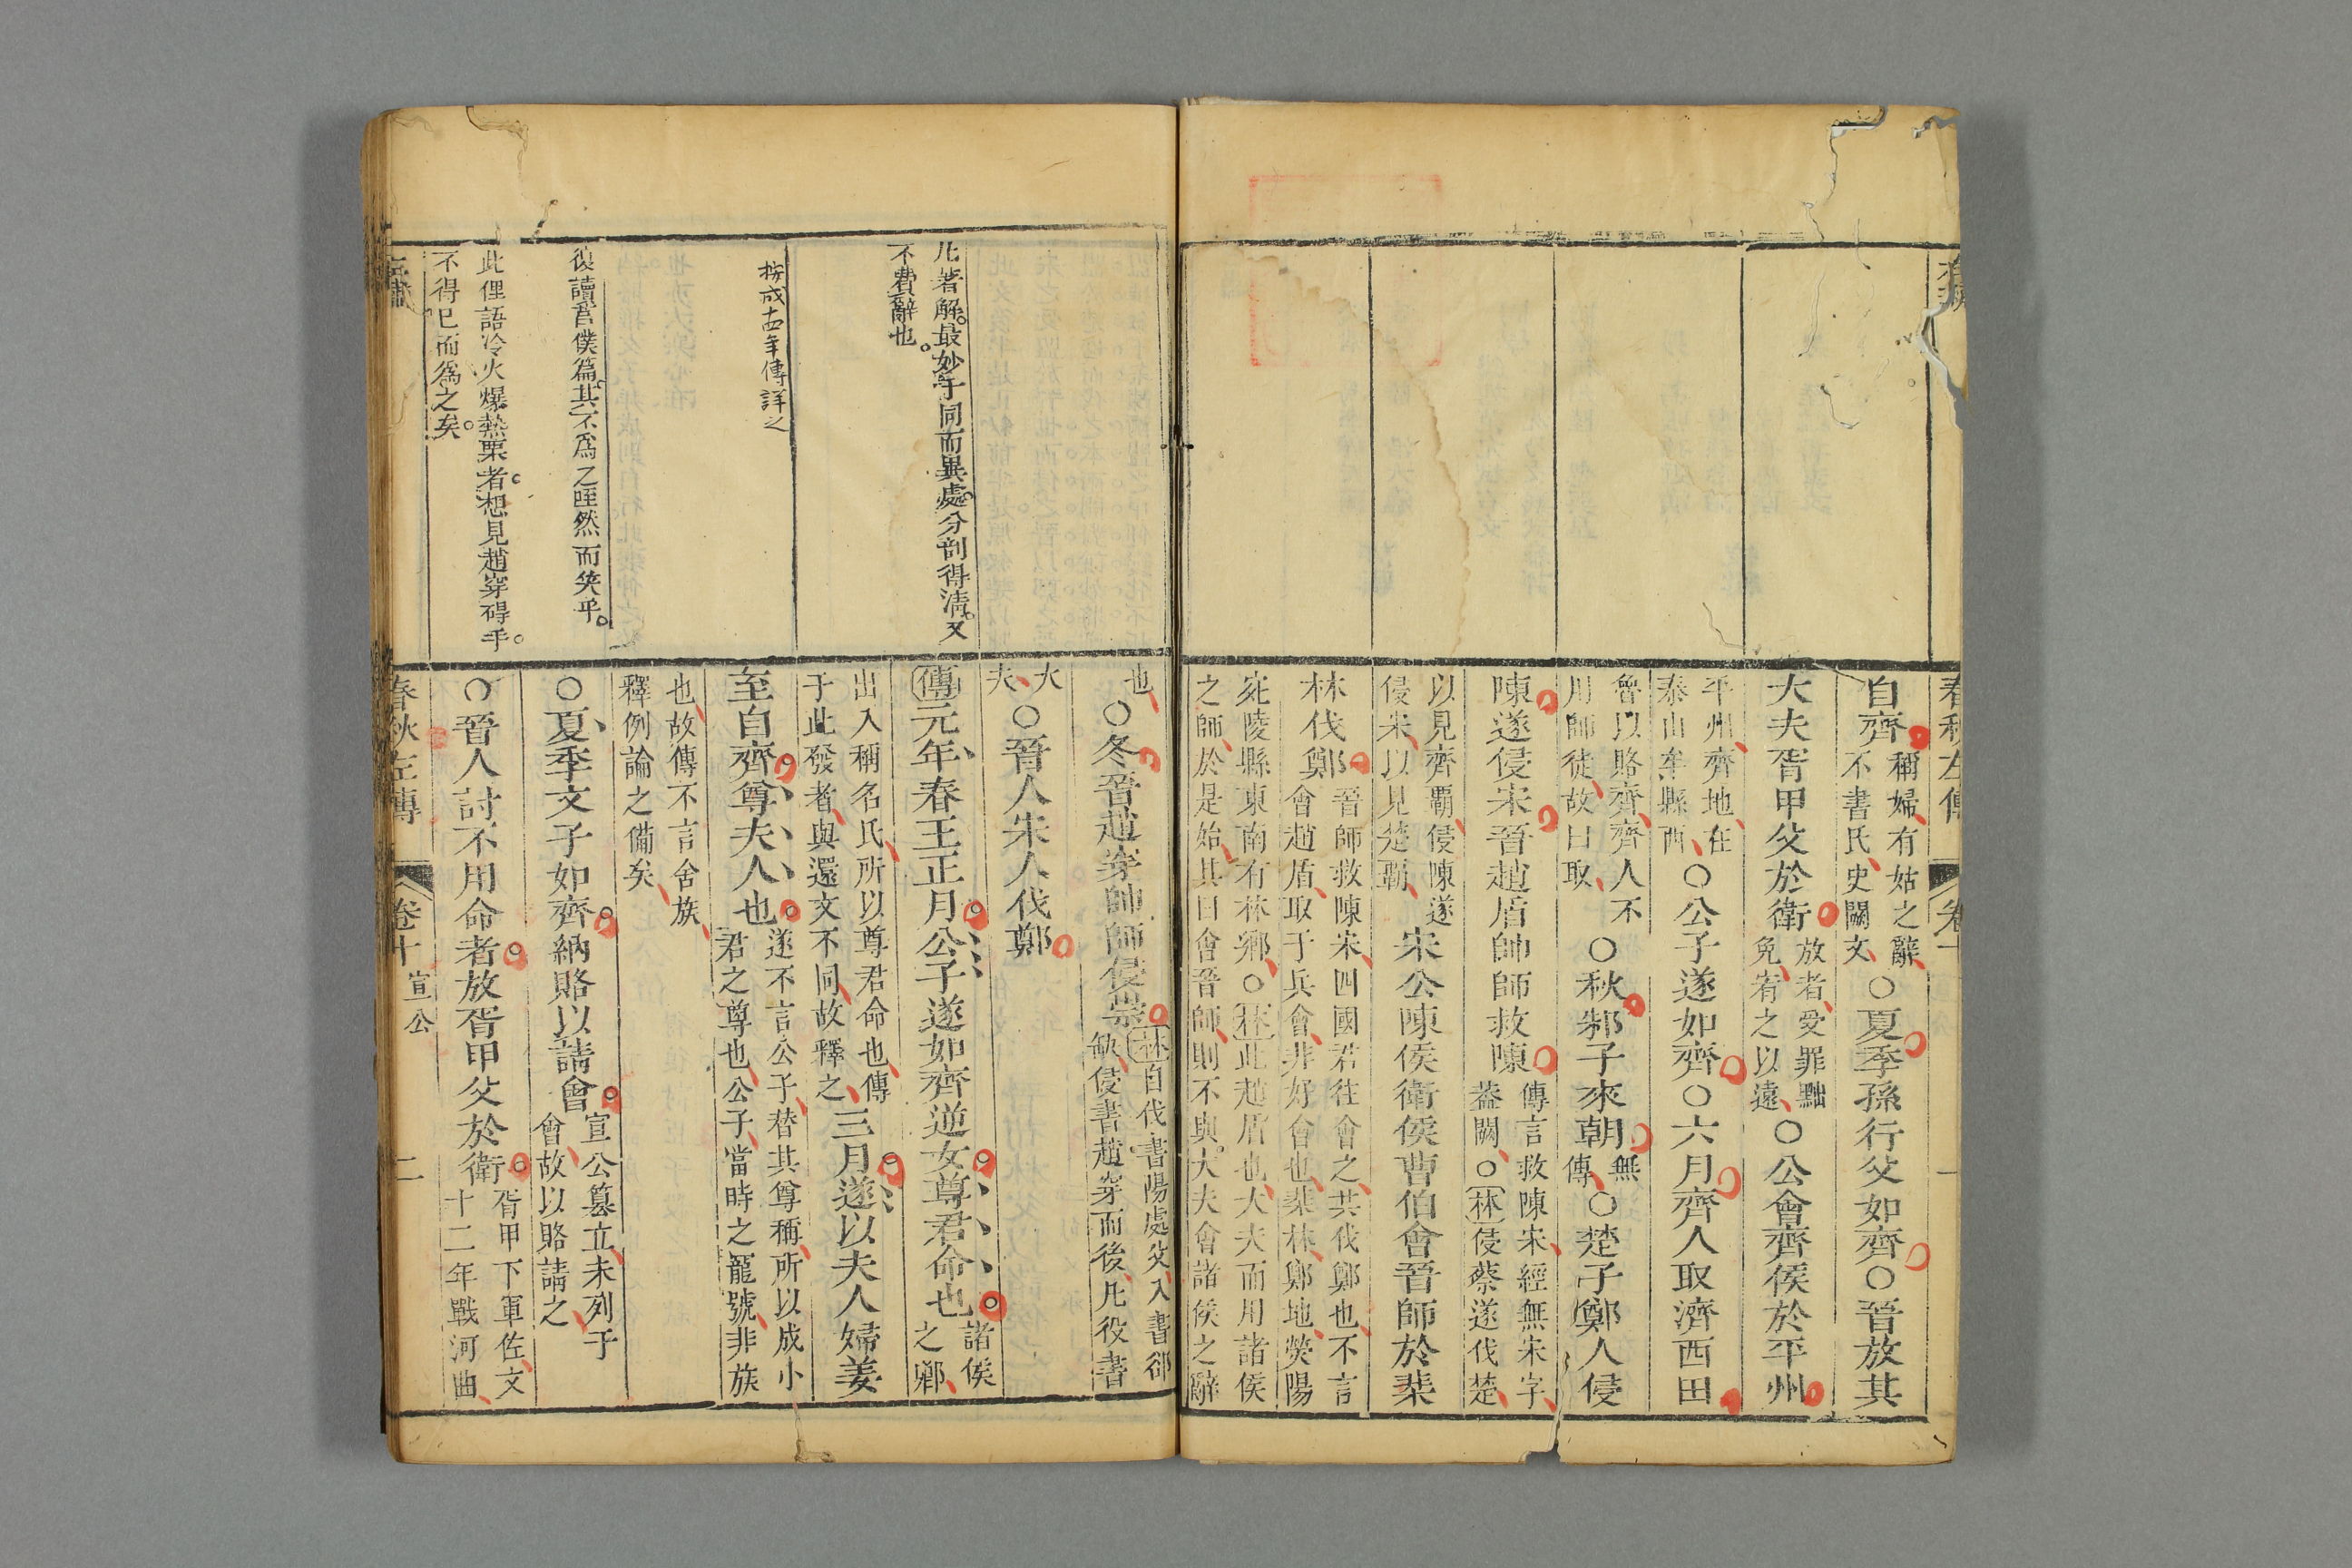 自齊稱婦有姑之辭不書氏史闕文○夏季孫行父如齊○晉放其
大夫胥甲父於衛放者受罪黜免宥之以遠○公會齊侯於平州
平州齊地在泰山牟縣西○公子遂如齊○六月齊人取濟西田
魯以賂齊齊人不用師徒故曰取○秋邾子來朝無傳○楚子鄭人侵
陳遂侵宋晉趙盾帥師救陳傳言救陳宋經無宋字蓋闕○林侵蔡遂伐楚
以見齊霸侵陳遂侵宋以見楚霸宋公陳侯衛侯曹伯會晉師於棐
林伐鄭晉師救陳宋四國君往會之共伐鄭也不言會趙盾取于兵會非好會也棐林鄭地熒陽
宛陵縣東南有林鄉○林此趙盾也大夫而用諸侯之師於是始其曰會晉師則不與大夫會諸侯之辭
也○冬晉趙穿帥師侵崇林自伐書陽處父入書郤缺侵書趙穿而後凡役書
大夫○晉人宋人伐鄭
傳元年春王正月公子遂如齊逆女尊君命也諸侯之卿
出入稱名氏所以尊君命也傳于此發者與還文不同故釋之三月遂以夫人婦姜
至自齊尊夫人也遂不言公子替其尊稱所以成小君之尊也公子當時之寵號非族
也故傳不言舍族釋例論之備矣
○夏季文子如齊納賂以請會宣公篡立未列于會故以賂請之
○晉人討不用命者放胥甲父於衛胥甲下軍佐文十二年戰河曲
凡著解最妙于同而異處分剖得清又
不費辭也
按成十四年傳詳之
復讀莒僕篇其不爲之啞然而笑乎
此俚語冷火爆熱栗者想見趙穿碍手
不得已而爲之矣
春秋左傳
卷十
宣公
二